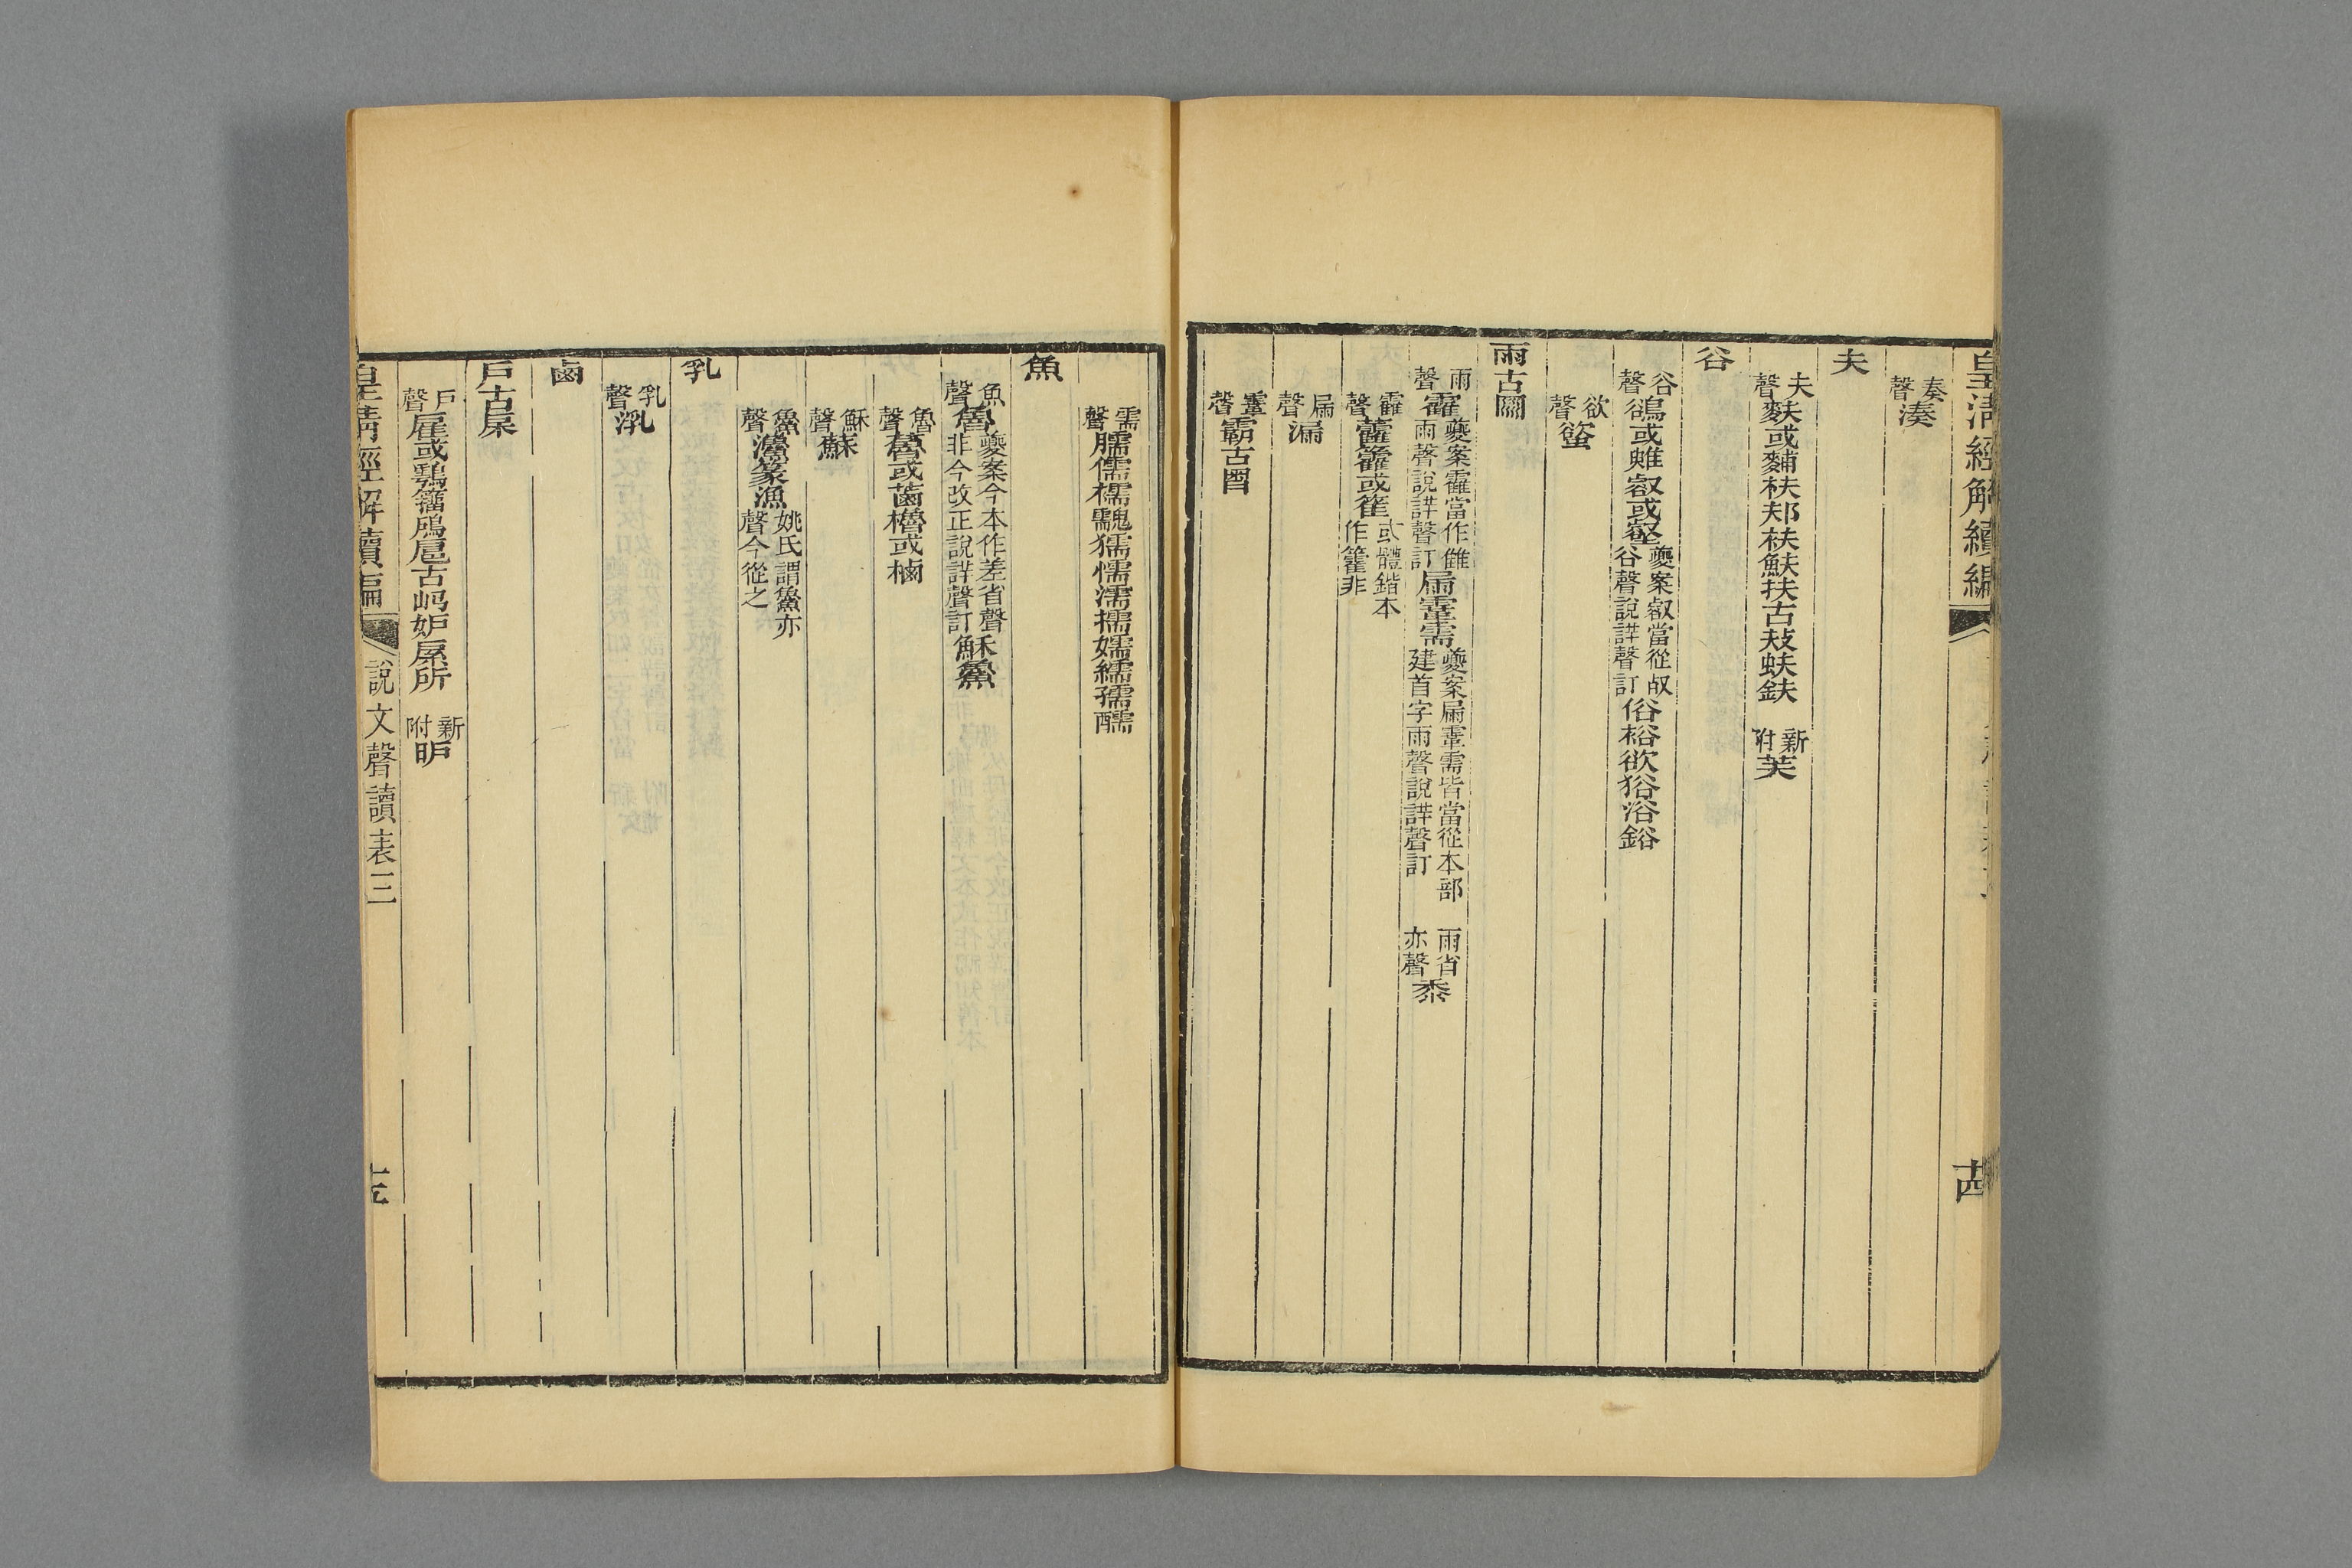 皇清經解續編
十四
奏聲湊
夫
夫聲麩或麱枎邞衭䱐扶古㧊蚨鈇 新附芙
谷
谷聲鵒或雓㕡或壑夔案㕡當從𣦼谷聲說詳聲訂俗裕欲㺄浴鋊
欲聲䘱
雨古𠕲
雨聲䨥夔案䨥當作雔雨聲說詳聲訂屚䨣需夔案屚䨣需皆當從本部建首字雨聲說詳聲訂 雨省亦聲黍
䨥聲籗或篧或體鍇本作籊非
屚聲漏
䨣聲霸古
需聲臑儒檽䰰獳懦濡擩嬬繻孺醹
魚
魚聲魯夔案今本作差省聲非今改正說詳聲訂穌䲆
魯聲蓾櫓或樐
穌聲蘇
䲆聲篆漁姚氏謂䲆亦聲今從之
乳
乳聲㳶
鹵
戶古㦿
戶聲雇或䳺籒鳸扈古妒戽所 新附昈
皇清經解續編 說文聲讀表三
十五